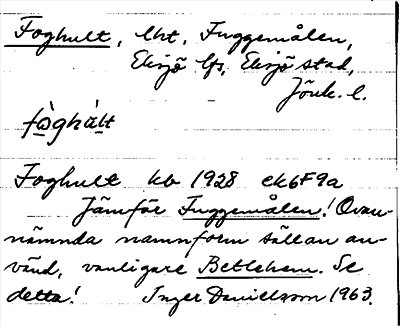 Foghult, lht, Fuggemålen,
Eksjö lfs, Eksjö stad,
Jönk. l.
fòghàlt
Foghult kb 1928 ek6F9a
Jämför Fuggemålen! Ovan-
nämnda namnform sällan an-
vänd, vanligare Betlehem. Se
detta! Inger Danielsson 1963.